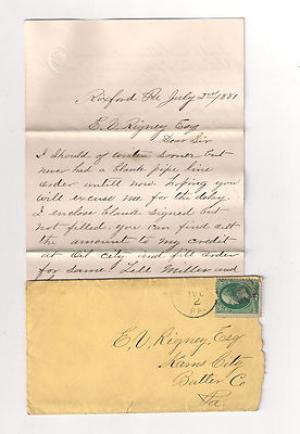 Roxford Pa July 2nd/881
E. V. Rigney Esq
Dear Sir
I should of writen sooner but
never had a blank pipe line
order untill now hoping you
will excuse me for the delay.
I enclose blank signed but
not filled. you can find out
the amount to my credit
at Oil City and fill order
for same. Tell Miller and
JUL
2
E. V. Rigney, Esq
Karns City
Butler Co
Pa.